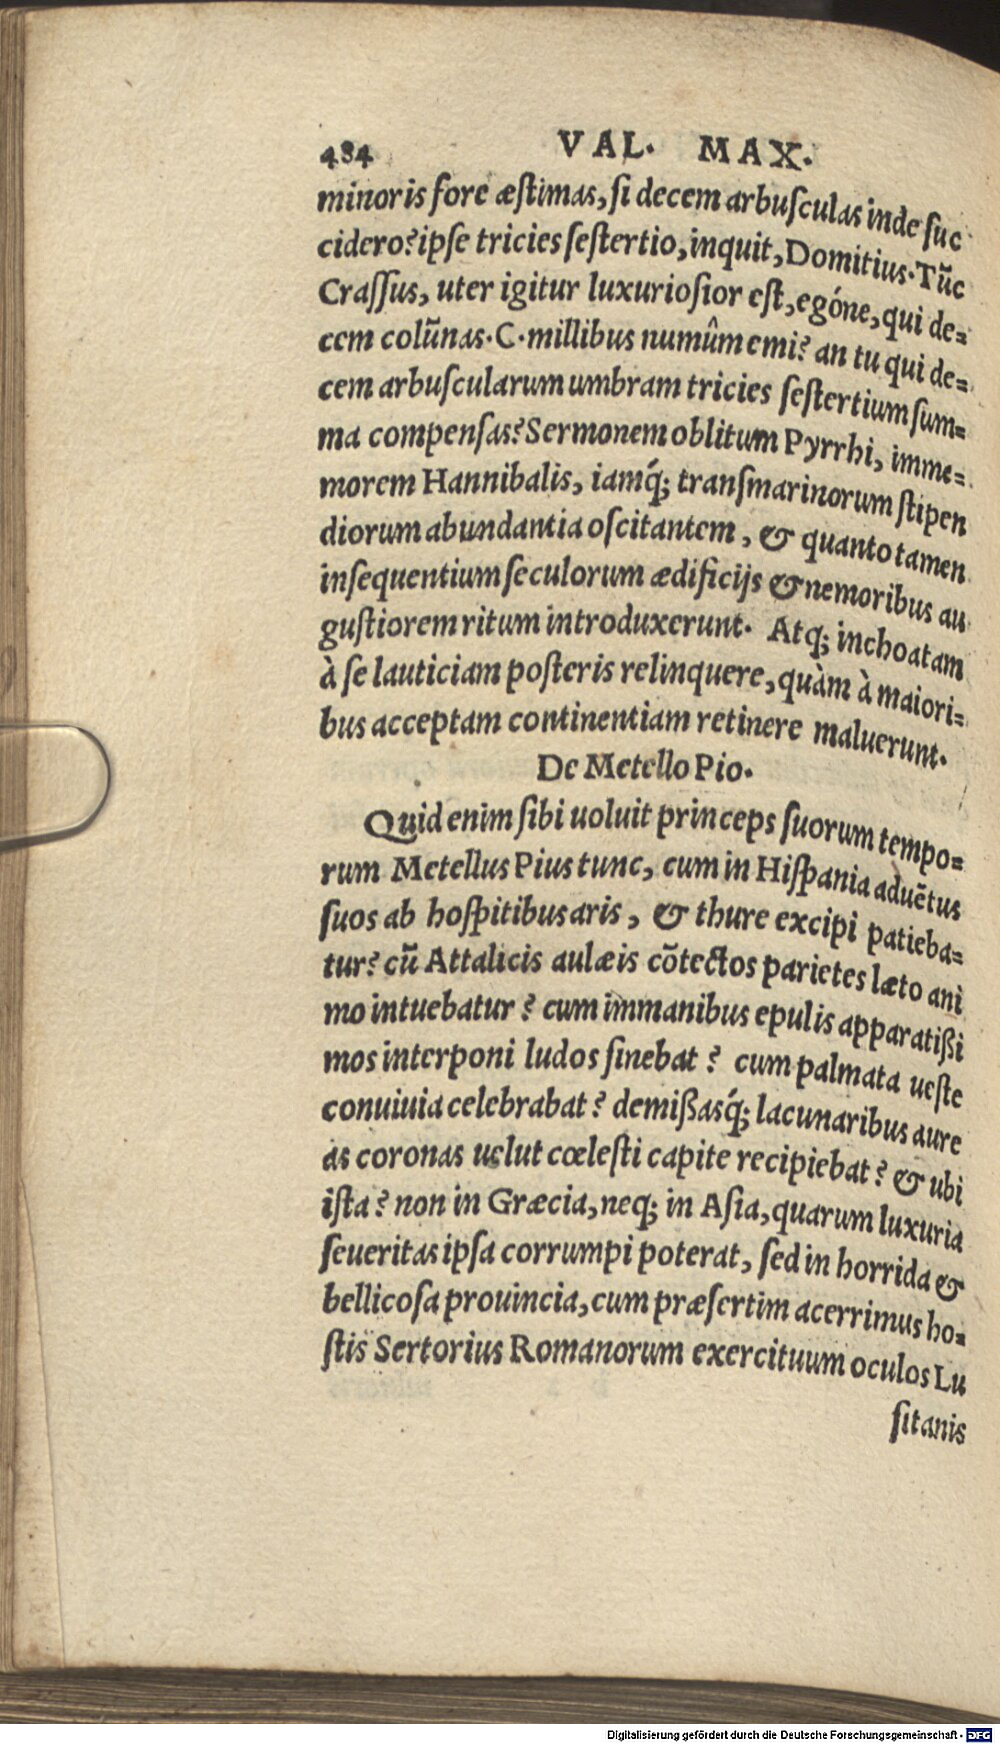 484 VAL. MAX.
minoris fore æſtimas, ſi decem arbuſculas inde ſuc
cidero? ipſe tricies ſeſtertio, inquit, Domitius. Tūc
Craſſus, uter igitur luxurioſior eſt, egóne, qui de=
cem colūnas. C. millibus numûm emi? an tu qui de=
cem arbuſcularum umbram tricies ſeſtertium ſum=
ma compenſas? Sermonem oblitum Pyrrhi, imme=
morem Hannibalis, iamq́; tranſmarinorum ſtipen
diorum abundantia oſcitantem, & quanto tamen
inſequentium ſeculorum ædificijs & nemoribus au
guſtiorem ritum introduxerunt. Atq; inchoatam
à ſe lauticiam poſteris relinquere, quàm à maiori=
bus acceptam continentiam retinere maluerunt.
De Metello Pio.
Quid enim ſibi uoluit princeps ſuorum tempo=
rum Metellus Pius tunc, cum in Hiſpania aduētus
ſuos ab hoſpitibus aris, & thure excipi patieba=
tur? cū Attalicis aulæis cōtectos parietes læto ani
mo intuebatur? cum immanibus epulis apparatißi
mos interponi ludos ſinebat? cum palmata ueſte
conuiuia celebrabat? demißasq́; lacunaribus aure
as coronas uelut cœleſti capite recipiebat? & ubi
iſta? non in Græcia, neq; in Aſia, quarum luxuria
ſeueritas ipſa corrumpi poterat, ſed in horrida &
bellicoſa prouincia, cum præſertim acerrimus ho=
ſtis Sertorius Romanorum exercituum oculos Lu
ſitanis
Digitalisierung gefördert durch die Deutsche Forschungsgemeinschaft - DFG